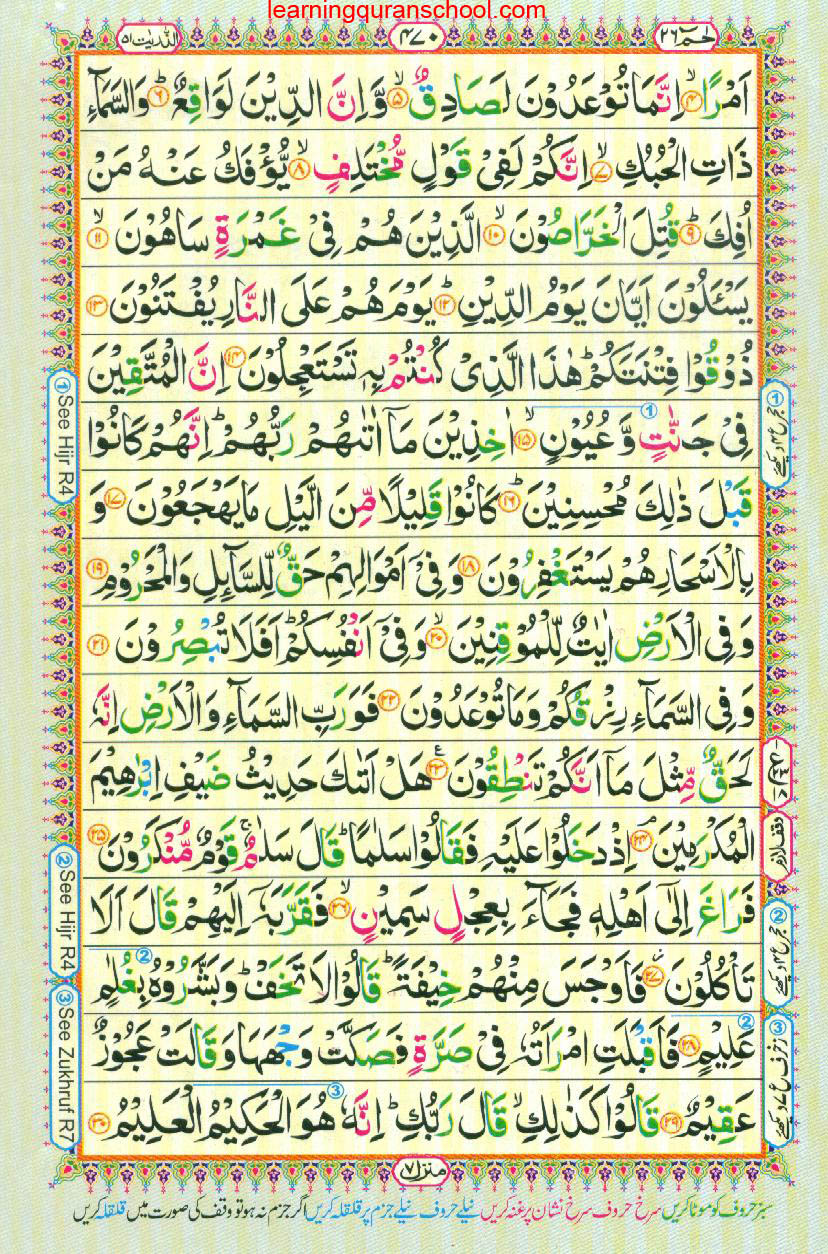 learningquranschool.com
حٰمٓ ٢٦
٤٧٠
الذّٰریٰت ٥١
اَمۡرًا ۙ﴿۴﴾ اِنَّمَا تُوۡعَدُوۡنَ لَصَادِقٌ ۙ﴿۵﴾ وَّاِنَّ الدِّیۡنَ لَوَاقِعٌ ؕ﴿۶﴾ وَالسَّمَآءِ
ذَاتِ الۡحُبُکِ ۙ﴿۷﴾ اِنَّکُمۡ لَفِیۡ قَوۡلٍ مُّخۡتَلِفٍ ۙ﴿۸﴾ یُّؤۡفَکُ عَنۡہُ مَنۡ
اُفِکَ ؕ﴿۹﴾ قُتِلَ الۡخَرّٰصُوۡنَ ۙ﴿۱۰﴾ الَّذِیۡنَ ہُمۡ فِیۡ غَمۡرَۃٍ سَاہُوۡنَ ۙ﴿۱۱﴾
یَسۡـَٔلُوۡنَ اَیَّانَ یَوۡمُ الدِّیۡنِ ؕ﴿۱۲﴾ یَوۡمَ ہُمۡ عَلَی النَّارِ یُفۡتَنُوۡنَ ﴿۱۳﴾
ذُوۡقُوۡا فِتۡنَتَکُمۡ ؕ ہٰذَا الَّذِیۡ کُنۡتُمۡ بِہٖ تَسۡتَعۡجِلُوۡنَ ﴿۱۴﴾ اِنَّ الۡمُتَّقِیۡنَ
فِیۡ جَنّٰتٍ وَّعُیُوۡنٍ ۙ﴿۱۵﴾ اٰخِذِیۡنَ مَاۤ اٰتٰىہُمۡ رَبُّہُمۡ ؕ اِنَّہُمۡ کَانُوۡا
قَبۡلَ ذٰلِکَ مُحۡسِنِیۡنَ ؕ﴿۱۶﴾ کَانُوۡا قَلِیۡلًا مِّنَ الَّیۡلِ مَا یَہۡجَعُوۡنَ ﴿۱۷﴾ وَ
بِالۡاَسۡحَارِ ہُمۡ یَسۡتَغۡفِرُوۡنَ ﴿۱۸﴾ وَفِیۡۤ اَمۡوَالِہِمۡ حَقٌّ لِّلسَّآئِلِ وَالۡمَحۡرُوۡمِ ﴿۱۹﴾
وَفِی الۡاَرۡضِ اٰیٰتٌ لِّلۡمُوۡقِنِیۡنَ ۙ﴿۲۰﴾ وَفِیۡۤ اَنۡفُسِکُمۡ ؕ اَفَلَا تُبۡصِرُوۡنَ ﴿۲۱﴾
وَفِی السَّمَآءِ رِزۡقُکُمۡ وَمَا تُوۡعَدُوۡنَ ﴿۲۲﴾ فَوَرَبِّ السَّمَآءِ وَالۡاَرۡضِ اِنَّہٗ
لَحَقٌّ مِّثۡلَ مَاۤ اَنَّکُمۡ تَنۡطِقُوۡنَ ﴿۲۳﴾ ہَلۡ اَتٰىکَ حَدِیۡثُ ضَیۡفِ اِبۡرٰہِیۡمَ
الۡمُکۡرَمِیۡنَ ۘ﴿۲۴﴾ اِذۡ دَخَلُوۡا عَلَیۡہِ فَقَالُوۡا سَلٰمًا ؕ قَالَ سَلٰمٌ ۚ قَوۡمٌ مُّنۡکَرُوۡنَ ﴿۲۵﴾
فَرَاغَ اِلٰۤی اَہۡلِہٖ فَجَآءَ بِعِجۡلٍ سَمِیۡنٍ ۙ﴿۲۶﴾ فَقَرَّبَہٗۤ اِلَیۡہِمۡ قَالَ اَلَا
تَاۡکُلُوۡنَ ۫﴿۲۷﴾ فَاَوۡجَسَ مِنۡہُمۡ خِیۡفَۃً ؕ قَالُوۡا لَا تَخَفۡ ؕ وَبَشَّرُوۡہُ بِغُلٰمٍ
عَلِیۡمٍ ﴿۲۸﴾ فَاَقۡبَلَتِ امۡرَاَتُہٗ فِیۡ صَرَّۃٍ فَصَکَّتۡ وَجۡہَہَا وَقَالَتۡ عَجُوۡزٌ
عَقِیۡمٌ ﴿۲۹﴾ قَالُوۡا کَذٰلِکِ ۙ قَالَ رَبُّکِ ؕ اِنَّہٗ ہُوَ الۡحَکِیۡمُ الۡعَلِیۡمُ ﴿۳۰﴾
① See Hijr R4
② See Hijr R4
③ See Zukhruf R7
وقف لازم
منزل ٧
سبز حروف کو موٹا کریں سرخ حروف سرخ نشان پر غنہ کریں نیلے حروف نیلے جزم پر قلقلہ کریں اگر جزم نہ ہو تو وقف کی صورت میں قلقلہ کریں